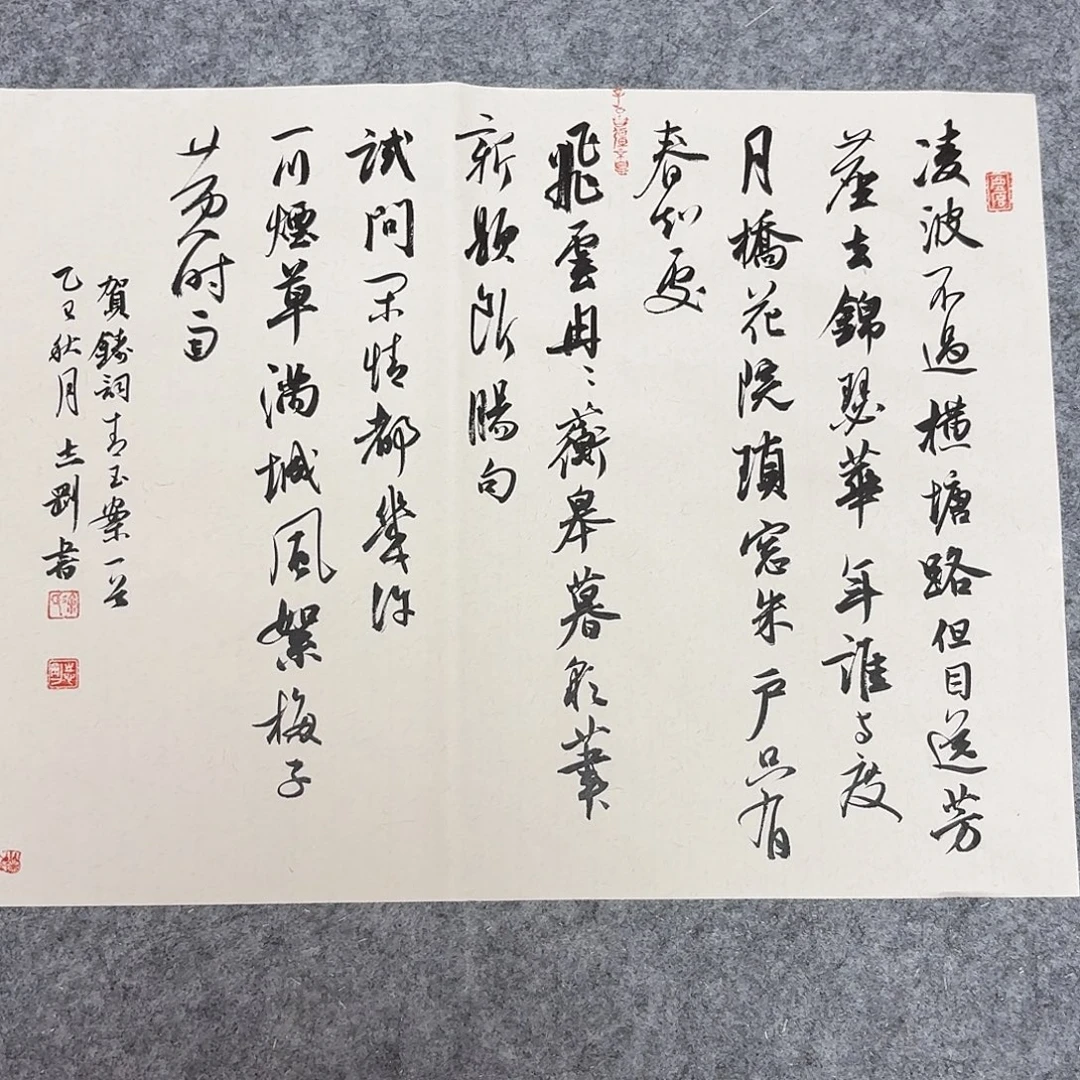 凌波不過橫塘路但目送芳
塵去錦瑟華年誰与度
月橋花院瑣窓朱戶只有
春知處
飛雲冉〻蘅皋暮彩筆
新題斷腸句
試問閑情都幾許
一川煙草滿城風絮梅子
黃时雨
賀鑄詞青玉案一首
乙巳秋月志剛書